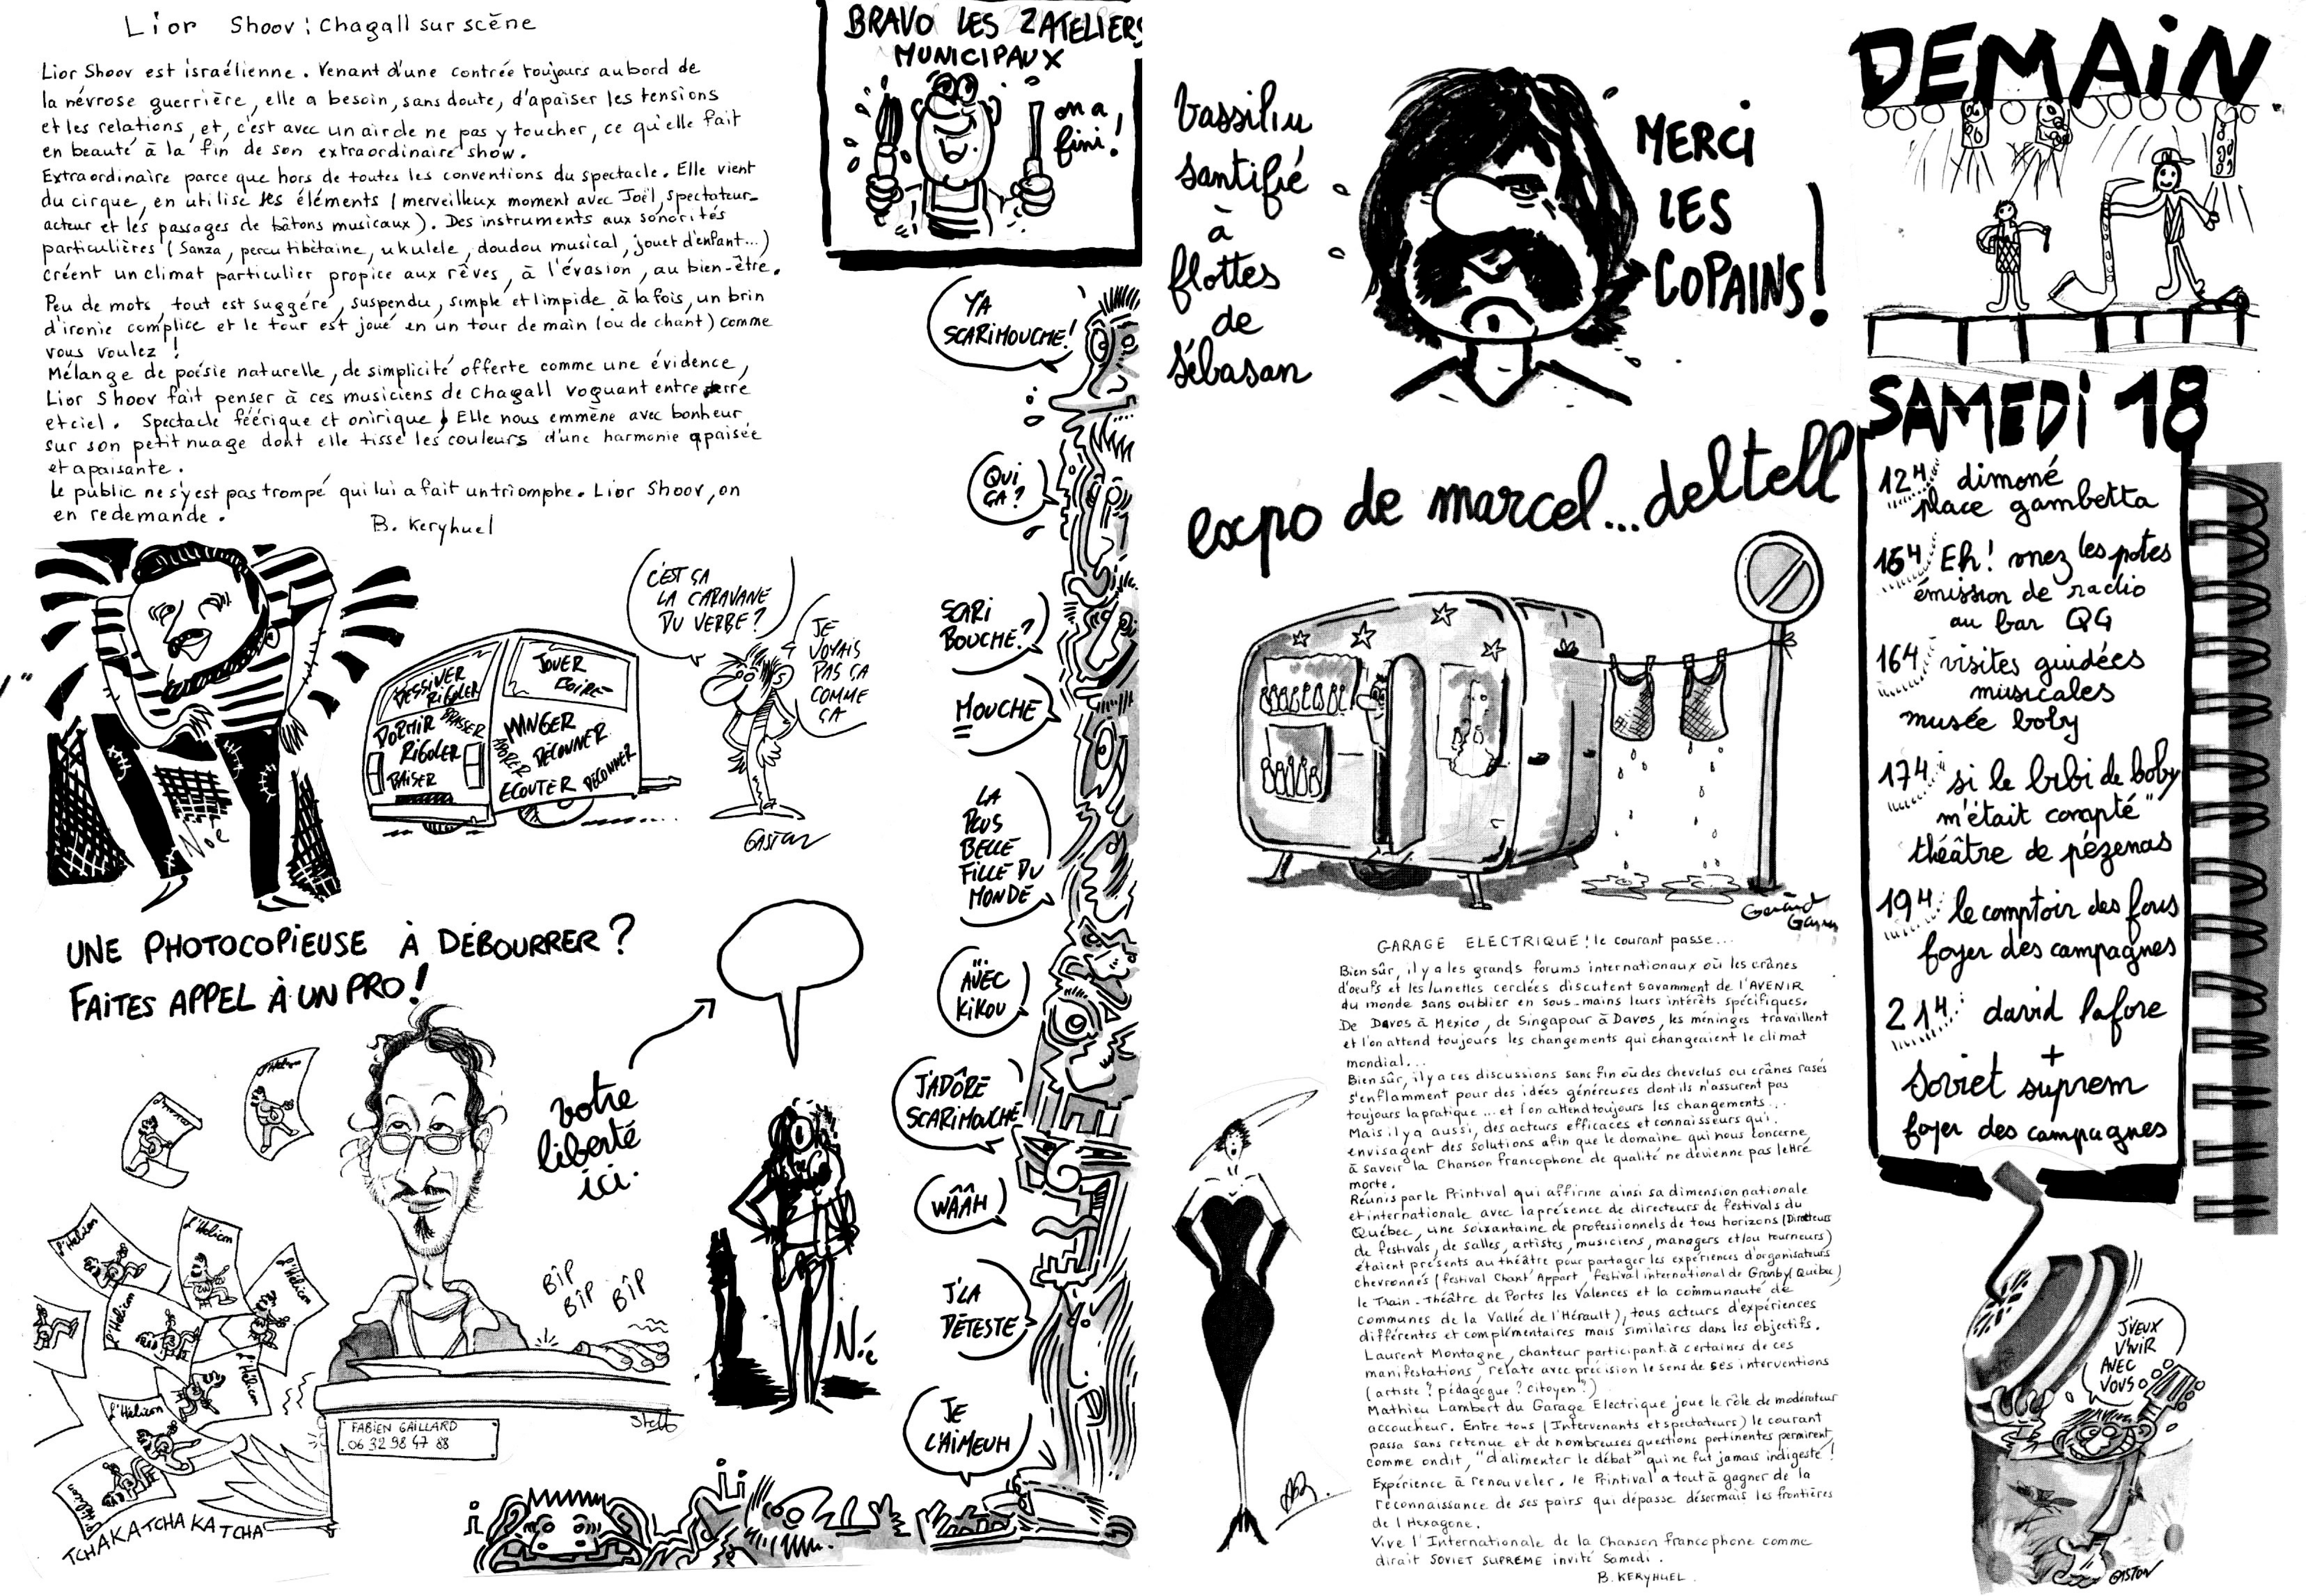 Lior Shoov : Chagall sur scène
Lior Shoov est israélienne. Venant d'une contrée toujours au bord de
la névrose guerrière, elle a besoin, sans doute, d'apaiser les tensions
et les relations, et, c'est avec un air de ne pas y toucher, ce qu'elle fait
en beauté à la fin de son extraordinaire show.
Extraordinaire parce que hors de toutes les conventions du spectacle. Elle vient
du cirque, en utilise les éléments (merveilleux moment avec Joël, spectateur-
acteur et les passages de bâtons musicaux). Des instruments aux sonorités
particulières (Sanza, percu tibétaine, ukulele, doudou musical, jouet d'enfant...)
créent un climat particulier propice aux rêves, à l'évasion, au bien-être.
Peu de mots, tout est suggéré, suspendu, simple et limpide à la fois, un brin
d'ironie complice et le tour est joué en un tour de main (ou de chant) comme
vous voulez !
Mélange de poésie naturelle, de simplicité offerte comme une évidence,
Lior Shoov fait penser à ces musiciens de Chagall voguant entre terre
et ciel. Spectacle féérique et onirique ! Elle nous emmène avec bonheur
sur son petit nuage dont elle tisse les couleurs d'une harmonie apaisée
et apaisante.
Le public ne s'y est pas trompé qui lui a fait un triomphe. Lior Shoov, on
en redemande.
B. Keryhuel
BRAVO LES ZATELIERS
MUNICIPAUX
on a
fini !
Y'A
SCARIMOUCHE !
QUI
ÇA ?
SCARI
BOUCHE ?
MOUCHE
LA
PLUS
BELLE
FILLE DU
MONDE
... AVEC
KIKOU
J'ADÔRE
SCARIMOUCHE
WÂÂH
J'LA
DÉTESTE
JE
L'AIMEUH
Noé
DESSINER
RIGOLER
DORMIR
RIGOLER
BAISER
JOUER
BOIRE
MANGER
DÉCONNER
ECOUTER
DÉCONNER
C'EST ÇA
LA CARAVANE
DU VERBE ?
JE
VOYAIS
PAS ÇA
COMME
ÇA
GASTON
UNE PHOTOCOPIEUSE À DÉBOURRER ?
FAITES APPEL À UN PRO !
l'Hélicon
l'Hélicon
l'Hélicon
l'Hélicon
l'Hélicon
l'Hélicon
l'Hélicon
BÎP
BÎP
BÎP
FABIEN GAILLARD
06 32 98 47 88
TCHAKATCHAKATCHA
votre
liberté
ici.
Noé
Vassiliu
santifié
à
flottes
de
Sébasan
MERCI
LES
COPAINS !
expo de marcel... deltell
GARAGE ELECTRIQUE ! le courant passe...
Bien sûr, il y a les grands forums internationaux où les crânes
d'oeufs et les lunettes cerclées discutent savamment de l'AVENIR
du monde sans oublier en sous-mains leurs intérêts spécifiques.
De Davos à Mexico, de Singapour à Davos, les méninges travaillent
et l'on attend toujours les changements qui changeraient le climat
mondial...
Bien sûr, il y a ces discussions sans fin où des chevelus ou crânes rasés
s'enflamment pour des idées généreuses dont ils n'assurent pas
toujours la pratique... et l'on attend toujours les changements...
Mais il y a aussi, des acteurs efficaces et connaisseurs qui
envisagent des solutions afin que le domaine qui nous concerne
à savoir la Chanson francophone de qualité ne devienne pas lettre
morte.
Réunis par le Printival qui affirme ainsi sa dimension nationale
et internationale avec la présence de directeurs de festivals du
Québec, une soixantaine de professionnels de tous horizons (Directeurs
de festivals, de salles, artistes, musiciens, managers et/ou tourneurs)
étaient présents au théâtre pour partager les expériences d'organisateurs
chevronnés (festival Chant'Appart, festival international de Granby Québec)
le Train-Théâtre de Portes les Valences et la communauté de
communes de la Vallée de l'Hérault), tous acteurs d'expériences
différentes et complémentaires mais similaires dans les objectifs.
Laurent Montagne, chanteur participant à certaines de ces
manifestations, relate avec précision le sens de ses interventions
(artiste ? pédagogue ? citoyen ?)
Mathieu Lambert du Garage Electrique joue le rôle de modérateur
accoucheur. Entre tous (Intervenants et spectateurs) le courant
passa sans retenue et de nombreuses questions pertinentes permirent,
comme on dit, "d'alimenter le débat" qui ne fut jamais indigeste !
Expérience à renouveler. le Printival a tout à gagner de la
reconnaissance de ses pairs qui dépasse désormais les frontières
de l'Hexagone.
Vive l'Internationale de la Chanson francophone comme
dirait SOVIET SUPREME invité Samedi.
B. KERYHUEL.
DEMAIN
SAMEDI 18
12H dimoné
place gambetta
15H Eh ! onez les potes
émission de radio
au bar QG
16H visites guidées
musicales
musée boby
17H si le bibi de boby
m'était compté"
théâtre de pézenas
19H le comptoir des fous
foyer des campagnes
21H : david lafore
+
soviet suprem
foyer des campagnes
J'VEUX
V'NIR
AVEC
VOUS
GASTON